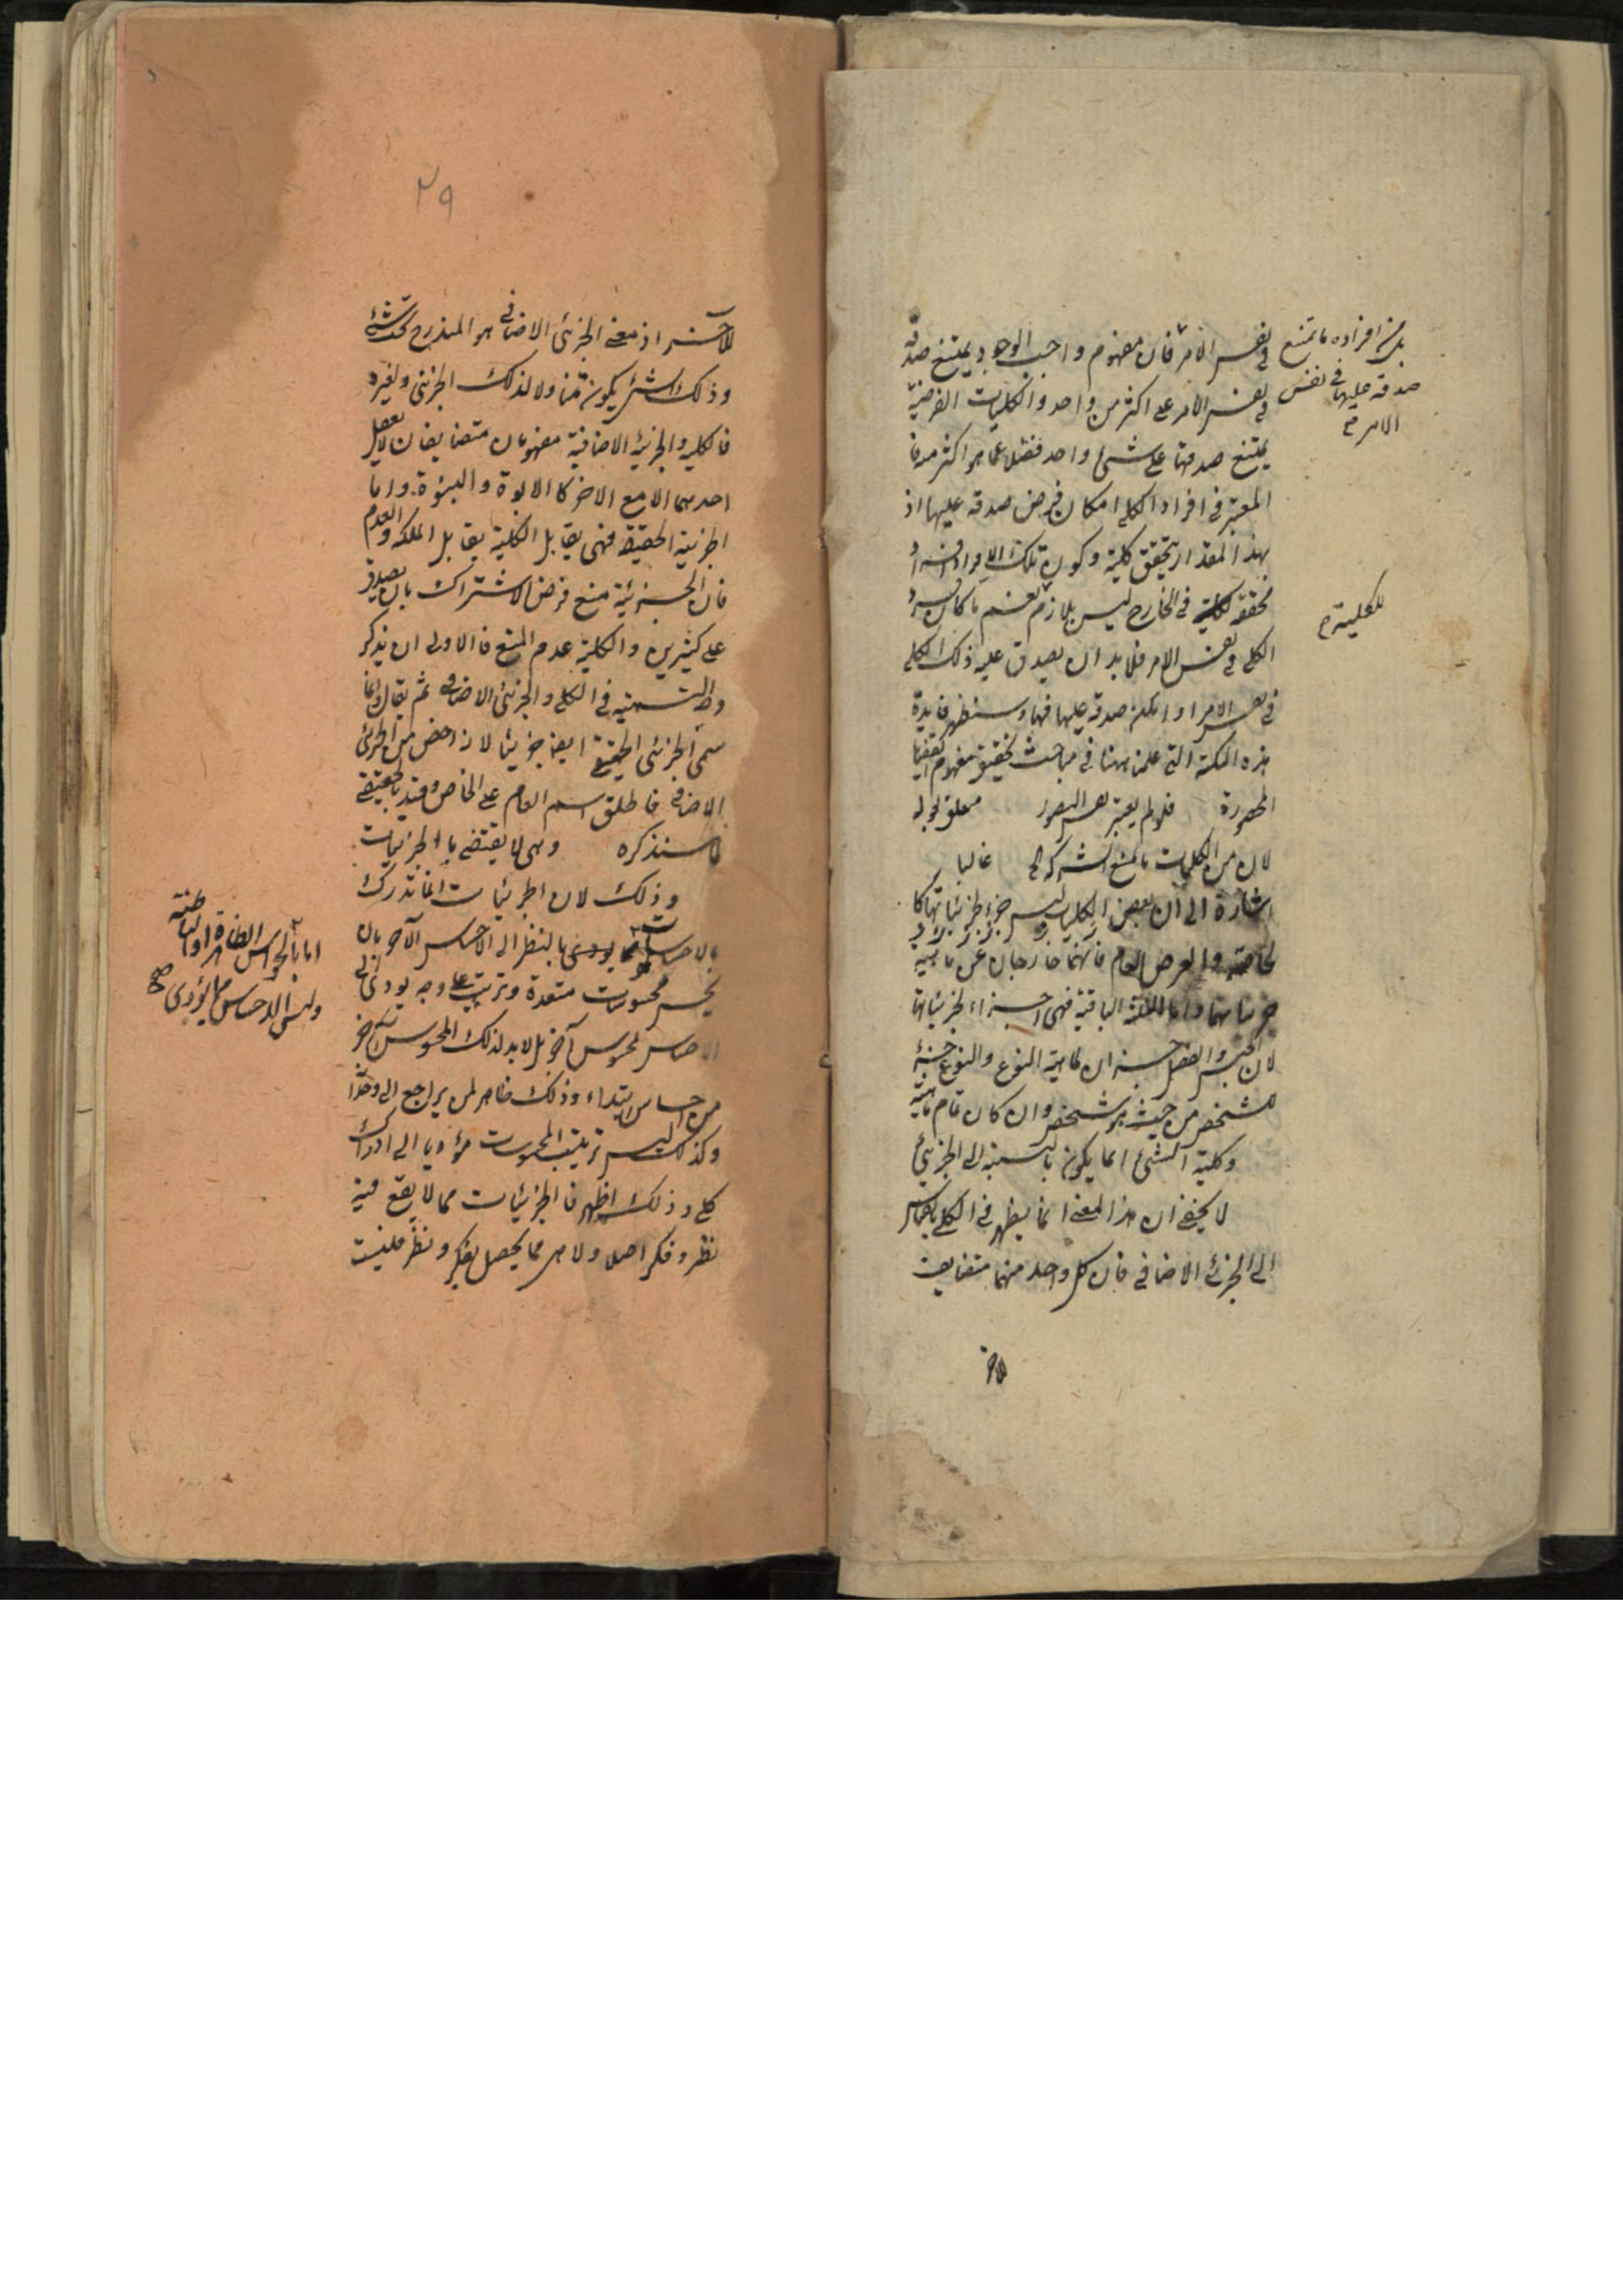 في نفس الامر فان مفهوم واجب الوجود يمتنع صدقه
في نفس الامر على اكثر من واحد والكليات الفرضية
يمتنع صدقها على شئ واحد فضلا عما هو اكثر منه فا
المعتبر في افراد الكلي امكان فرض صدقه عليها اذ
بهذا المقدار يتحقق كلية وكون تلك الافراد
محققة في الخارج ليس بلازم نعم ما كان فردا
الكلي في نفس الامر فلا بد ان يصدق عليه ذلك الكلي
في نفس الامر او امكن صدقه عليها فيها وستظهر فايدة
هذه النكتة التي علمت ههنا في مباحث تحقيق مفهوم القضايا
المحصورة فلو لم يعتبر نفس التصور متعلق لقوله
لان من الكليات ما يمنع الشركة غالبا
اشارة الى ان بعض الكليات ليس جزء لجزئياتها كا
لخاصة والعرض العام فانهما خارجان عن ماهية
جزئياتهما واما الثلثة الباقية فهي اجزاء لجزئياتها
لان الجنس والفصل جزءان لماهية النوع والنوع جزء
للشخص من حيث هو شخص وان كان تمام ماهيته
وكلية الشئ انما يكون بالنسبة الى الجزئي
لا يخفى ان هذا المعنى انما يظهر في الكلي بالقياس
الى الجزئي الاضافي فان كل واحد منهما متضايف
للاخر
من افراده ما يمتنع
صدقه عليها في نفس
الامر صح
للكلية صح
٢٩
للآخر اذ معنى الجزئي الاضافي هو المندرج تحت شئ
وذلك الشئ يكون متناولا لذلك الجزئي ولغيره
فالكلية والجزئية الاضافية مفهومان متضايفان لا يعقل
احدهما الا مع الاخر كالابوة والبنوة واما
الجزئية الحقيقة فهي يقابل الكلية تقابل الملكة والعدم
فان الجزئية منع فرض الاشتراك بان يصدق
على كثيرين والكلية عدم المنع فالاولى ان يذكر
وجه التسمية في الكلي والجزئي الاضافي ثم يقال وانما
سمي الجزئي الحقيقي ايضا جزئيا لانه اخص من الجزئي
الاضافي فاطلق اسم العام على الخاص وقيد بالحقيقي
كما سنذكره وهي لا يقتضي بالجزئيات
وذلك لان الجزئيات انما تدرك
بالاحساسات يودى بالنظر الى الاحساس الآخر بان
يحس محسوسات متعددة وترتب على وجه يودى الى
الاحساس بمحسوس آخر بل لا بد لذلك المحسوس الآخر
من احساس ابتداء وذلك ظاهر لمن يراجع الى وجدانه
وكذلك ليس ترتيب المحسوسات مؤديا الى ادراك
كلي وذلك اظهر فالجزئيات مما لا يقع فيه
نظر وفكر اصلا ولا هي مما يحصل بفكر ونظر فليست
اما بالحواس الظاهرة او الباطنة
وليس الاحساس مما يؤدى صح